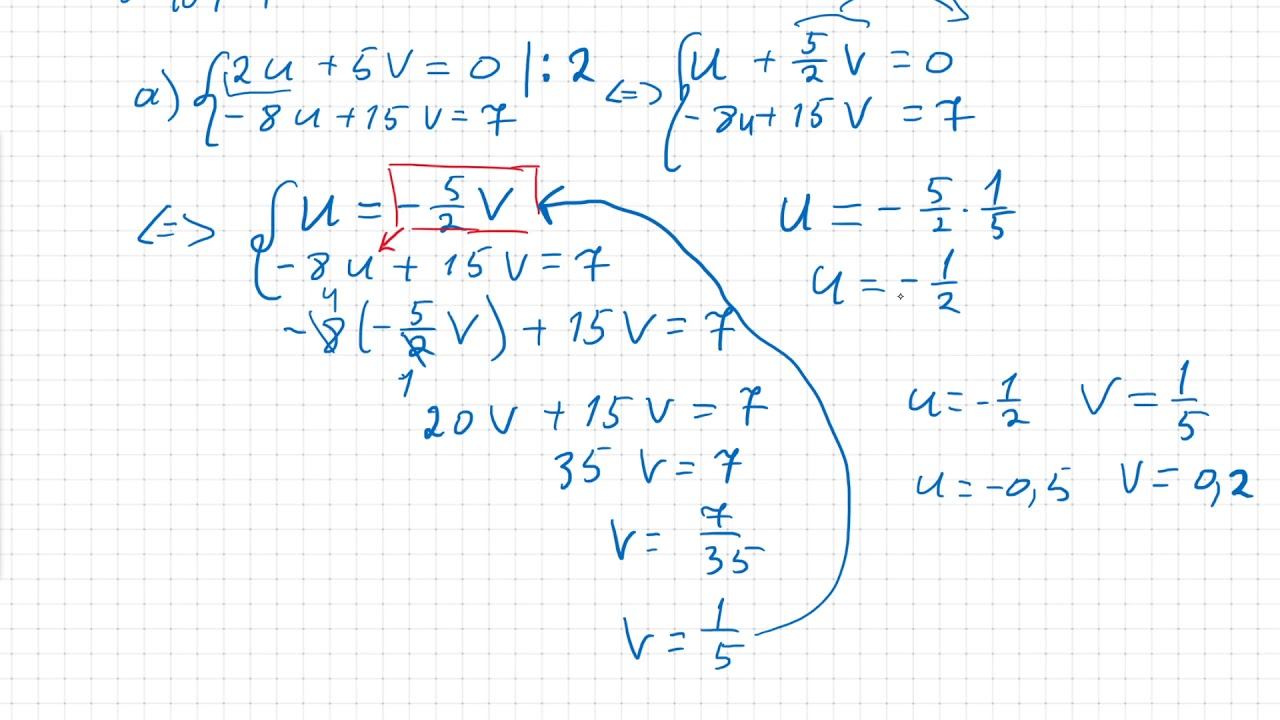 a) {2u + 5v = 0 |: 2 <=> {u + 5/2 v = 0
-8u + 15v = 7 -8u + 15v = 7
<=> {u = -5/2 v
-8u + 15v = 7
-8 4 (-5/2 1 v) + 15v = 7
20v + 15v = 7
35v = 7
v = 7/35
v = 1/5
u = -5/2 · 1/5
u = -1/2
u = -1/2 v = 1/5
u = -0,5 v = 0,2